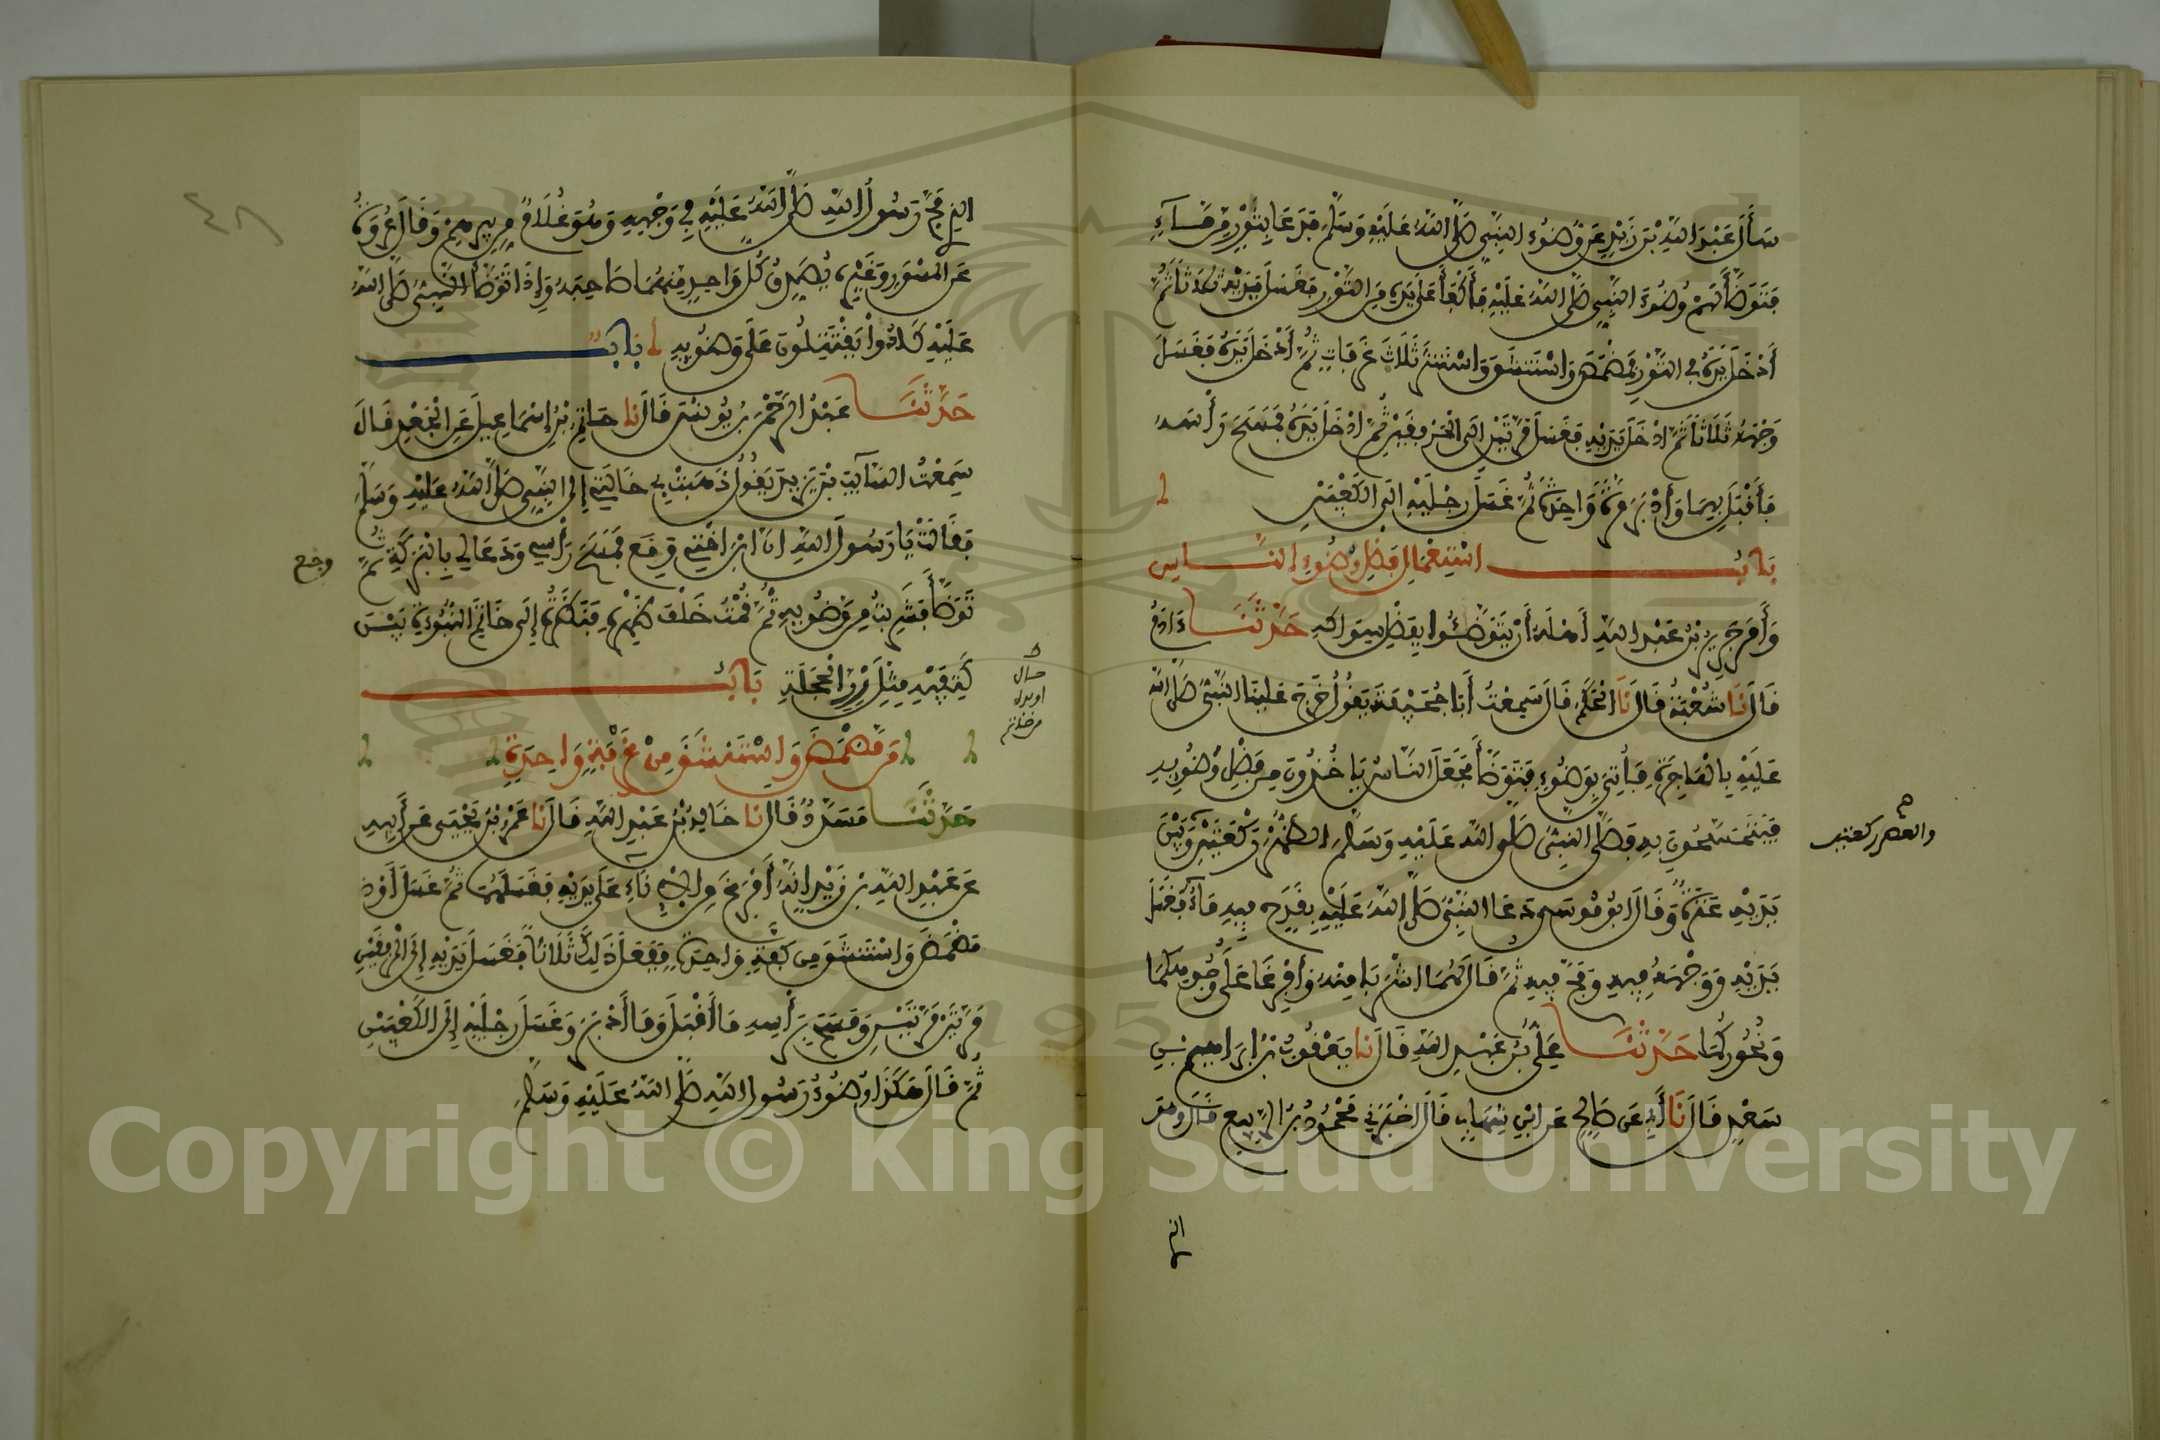 سَأَلَ عَبْدَ اللهِ بْنَ زَيْدٍ عَنْ وُضُوءِ النَّبِيِّ صَلَّى اللهُ عَلَيْهِ وَسَلَّمَ فَدَعَا بِتَوْرٍ مِن مَّآءٍ
فَتَوَضَّأَ لَهُمْ وُضُوءَ النَّبِيِّ صَلَّى اللهُ عَلَيْهِ فَأَكْفَأَ عَلَى يَدِهِ مِنَ التَّوْرِ فَغَسَلَ يَدَيْهِ ثَلَاثًا ثُمَّ
أَدْخَلَ يَدَهُ فِي التَّوْرِ فَمَضْمَضَ وَاسْتَنْشَقَ وَاسْتَنْثَرَ ثَلَاثَ غَرَفَاتٍ ثُمَّ أَدْخَلَ يَدَهُ فَغَسَلَ
وَجْهَهُ ثَلَاثًا ثُمَّ ادْخَلَ يَدَيْهِ فَغَسَلَ مَرَّتَيْنِ الَى الْمِرْفَقَيْنِ ثُمَّ ادْخَلَ يَدَهُ فَمَسَحَ رَأْسَهُ
فَأَقْبَلَ بِهِمَا وَأَدْبَرَ مَرَّةً وَاحِدَةً ثُمَّ غَسَلَ رِجْلَيْهِ الَى الكَعْبَيْنِ
بَابُ اسْتِعْمَالِ فَضْلِ وُضُوءِ النَّاسِ
وَأَمَرَ جَرِيرُ بْنُ عَبْدِ اللهِ أَهْلَهُ أَنْ يَتَوَضَّئُوا بِفَضْلِ سِوَاكِهِ حَدَّثَنَا ءَادَمُ
قَالَ نَا شُعْبَةُ قَالَ نَا الْحَكَمُ قَالَ سَمِعْتُ أَبَا جُحَيْفَةَ يَقُولُ خَرَجَ عَلَيْنَا النَّبِيُّ صَلَّى اللهُ
عَلَيْهِ بِالْهَاجِرَةِ فَأُتِيَ بِوَضُوءٍ فَتَوَضَّأَ فَجَعَلَ النَّاسُ يَاخُذُونَ مِن فَضْلِ وَضُوئِهِ
فَيَتَمَسَّحُونَ بِهِ فَصَلَّى النَّبِيُّ صَلَّى اللهُ عَلَيْهِ وَسَلَّمَ الظُّهْرَ رَكْعَتَيْنِ وَبَيْنَ
والعصر ركعتين
يَدَيْهِ عَنَزَةٌ وَقَالَ ابُو مُوسَى دَعَا النَّبِيُّ صَلَّى اللهُ عَلَيْهِ بِقَدَحٍ فِيهِ مَآءٌ فَغَسَلَ
يَدَيْهِ وَوَجْهَهُ فِيهِ وَمَجَّ فِيهِ ثُمَّ قَالَ لَهُمَا اشْرَبَا مِنْهُ وَأَفْرِغَا عَلَى وُجُوهِكُمَا
وَنُحُورِكُمَا حَدَّثَنَا عَلِيُّ بْنُ عَبْدِ اللهِ قَالَ نَا يَعْقُوبُ بْنُ ابْرَاهِيمَ بْنِ
سَعْدٍ قَالَ نَا أَبِي عَن صَالِحٍ عَنِ ابْنِ شِهَابٍ قَالَ اخْبَرَنِي مَحْمُودُ بْنُ الرَّبِيعِ قَالَ وَهُوَ
الذي
الذِي مَجَّ رَسُولُ اللهِ صَلَّى اللهُ عَلَيْهِ فِي وَجْهِهِ وَهُوَ غُلَامٌ مِن بِيرِهِمْ وَقَالَ عُرْوَةُ
عَنِ الْمِسْوَرِ وَغَيْرِهِ يُصَدِّقُ كُلُّ وَاحِدٍ مِنْهُمَا صَاحِبَهُ وَإِذَا تَوَضَّأَ النَّبِيُّ صَلَّى اللهُ
عَلَيْهِ كَادُوا يَقْتَتِلُونَ عَلَى وَضُوئِهِ بَابٌ
حَدَّثَنَا عَبْدُ الرَّحْمَنِ بْنُ يُونُسَ قَالَ نَا حَاتِمُ بْنُ إِسْمَاعِيلَ عَنِ الْجَعْدِ قَالَ
سَمِعْتُ السَّآئِبَ بْنَ يَزِيدَ يَقُولُ ذَهَبَتْ بِي خَالَتِي إِلَى النَّبِيِّ صَلَّى اللهُ عَلَيْهِ وَسَلَّمَ
فَقَالَتْ يَا رَسُولَ اللهِ انَّ ابْنَ اخْتِي وَقِعٌ فَمَسَحَ رَأْسِي وَدَعَا لِي بِالْبَرَكَةِ ثُمَّ
وجع
تَوَضَّأَ فَشَرِبْتُ مِن وَضُوئِهِ ثُمَّ قُمْتُ خَلْفَ ظَهْرِهِ فَنَظَرْتُ إِلَى خَاتَمِ النُّبُوءَةِ بَيْنَ
كَتِفَيْهِ مِثْلَ زِرِّ الْحَجَلَةِ بَابُ
مَن مَّضْمَضَ وَاسْتَنْشَقَ مِنْ غَرْفَةٍ وَاحِدَةٍ
حَدَّثَنَا مُسَدَّدٌ قَالَ نَا خَالِدُ بْنُ عَبْدِ اللهِ قَالَ نَا عَمْرُو بْنُ يَحْيَى عَن أَبِيهِ
عَن عَبْدِ اللهِ بْنِ زَيْدٍ انَّهُ أَفْرَغَ مِنَ الإِنَاءِ عَلَى يَدَيْهِ فَغَسَلَهُمَا ثُمَّ غَسَلَ أَوْ
مَضْمَضَ وَاسْتَنْشَقَ مِن كَفَّةٍ وَاحِدَةٍ فَفَعَلَ ذَلِكَ ثَلَاثًا فَغَسَلَ يَدَيْهِ إِلَى الْمِرْفَقَيْنِ
مَرَّتَيْنِ مَرَّتَيْنِ وَمَسَحَ بِرَأْسِهِ مَا أَقْبَلَ وَمَا أَدْبَرَ وَغَسَلَ رِجْلَيْهِ إِلَى الكَعْبَيْنِ
ثُمَّ قَالَ هَكَذَا وُضُوءُ رَسُولِ اللهِ صَلَّى اللهُ عَلَيْهِ وَسَلَّمَ
Copyright © King Saud University
1957